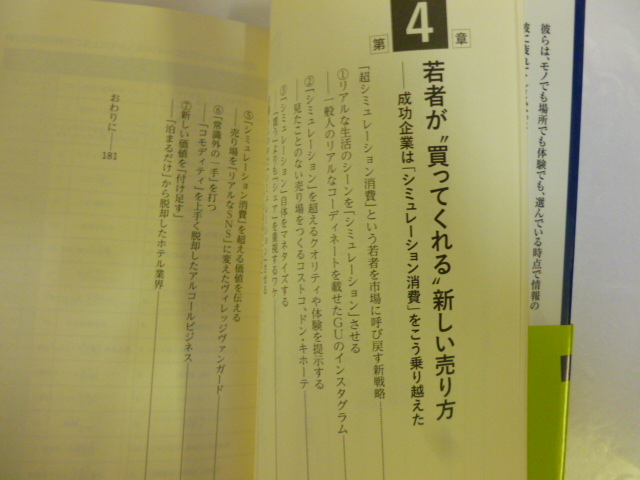 彼らは、モノでも場所でも体験でも、選んでいる時点で情報の
第4章
若者が〝買ってくれる〟新しい売り方
──成功企業は「シミュレーション消費」をこう乗り越えた
「超シミュレーション消費」という若者を市場に呼び戻す新戦略
①リアルな生活のシーンを「シミュレーション」させる
──一般人のリアルなコーディネートを載せたGUのインスタグラム
②「シミュレーション」を超えるクオリティや体験を提示する
──見たことのない売り場をつくるコストコ、ドン・キホーテ
③「シミュレーション」自体をマネタイズする
⑤「シミュレーション消費」を超える価値を伝える
──売り場を「リアルなSNS」に変えたヴィレッジヴァンガード
⑥「常識外の一手」を打つ
──「コモディティ」を上手く脱却したアルコールビジネス
⑦新しい価値を「付け足す」
──「泊まるだけ」から脱却したホテル業界
おわりに──181